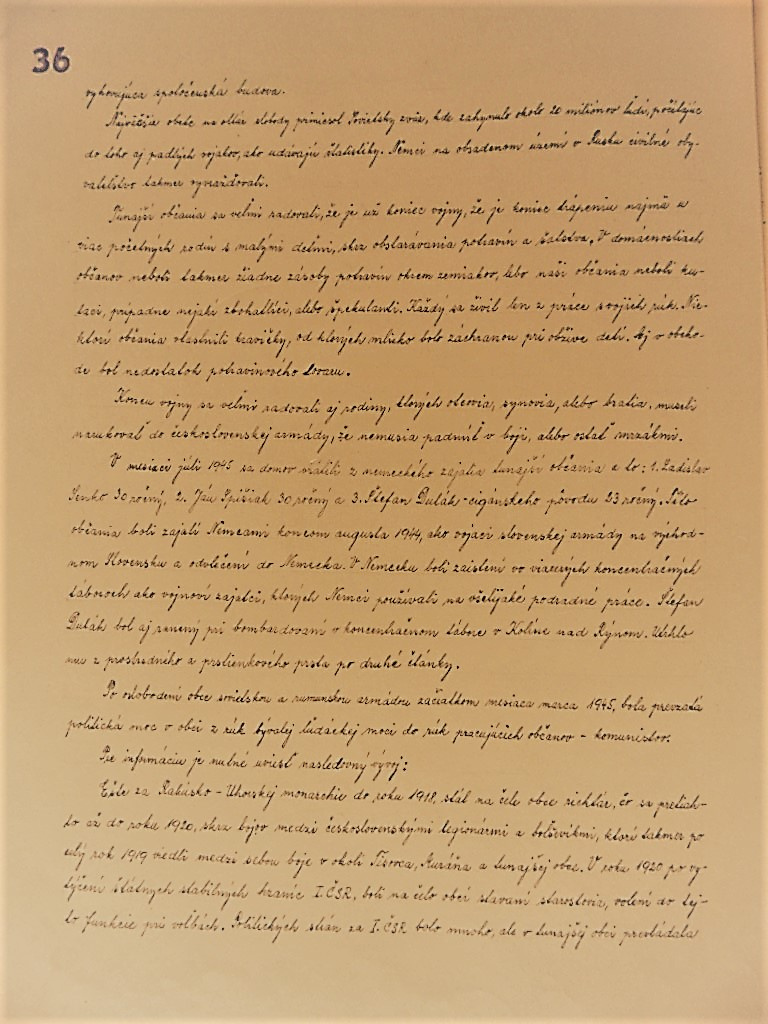 36
vyhovujúca spoločenská budova.
Najväčšie obete na oltár slobody priniesol Sovietsky zväz, kde zahynulo okolo 20 miliónov ľudí, počítajúc
do toho aj padlých vojakov, ako udávajú štatistiky. Nemci na obsadenom území v Rusku civilné oby-
vateľstvo takmer vyvražďovali.
Tunajší občania sa veľmi radovali, že je už koniec vojny, že je koniec trápeniu najmä u
viac početných rodín s malými deťmi, skrz obstarávania potravín a šatstva. V domácnostiach
občanov neboli takmer žiadne zásoby potravín okrem zemiakov, lebo naši občania neboli ku-
laci, prípadne nejakí zbohatlíci, alebo špekulanti. Každý sa živil len z práce svojich rúk. Nie-
ktorí občania vlastnili kravičky, od ktorých mlieko bolo záchranou pri obžive detí. Aj v obcho-
de bol nedostatok potravinového tovaru.
Koncu vojny sa veľmi radovali aj rodiny, ktorých otcovia, synovia, alebo bratia, museli
narukovať do československej armády, že nemusia padnúť v boji, alebo ostať mrzákmi.
V mesiaci júli 1945 sa domov vrátili z nemeckého zajatia tunajší občania a to: 1. Ladislav
Senko 30 ročný, 2. Ján Spišiak 30 ročný a 3. Štefan Dulák - cigánskeho pôvodu 23 ročný. Títo
občania boli zajatí Nemcami koncom augusta 1944, ako vojaci slovenskej armády na východ-
nom Slovensku a odvlečení do Nemecka. V Nemecku boli zaistení vo viacerých koncentračných
táboroch ako vojnoví zajatci, ktorých Nemci používali na všelijaké podradné práce. Štefan
Dulák bol aj ranený pri bombardovaní v koncentračnom tábore v Kolíne nad Rýnom. Utrhlo
mu z prostredného a prstienkového prsta po druhé články.
Po oslobodení obce sovietskou a rumunskou armádou začiatkom mesiaca marca 1945, bola prevzatá
politická moc v obci z rúk bývalej ľudáckej moci do rúk pracujúcich občanov - komunistov.
Pre informáciu je nutné uviesť nasledovný vývoj:
Ešte za Rakúsko - Uhorskej monarchie do roku 1918, stál na čele obce richtár, čo sa pretiah-
lo až do roku 1920, skrz bojov medzi československými legionármi a boľševikmi, ktorí takmer po
celý rok 1919 viedli medzi sebou boje v okolí Tisovca, Muráňa a tunajšej obce. V roku 1920 po vy-
týčení štátnych stabilných hraníc I. ČSR, boli na čelo obcí stavaní starostovia, volení do tej-
to funkcie pri voľbách. Politických strán za I. ČSR bolo mnoho, ale v tunajšej obci prevládala